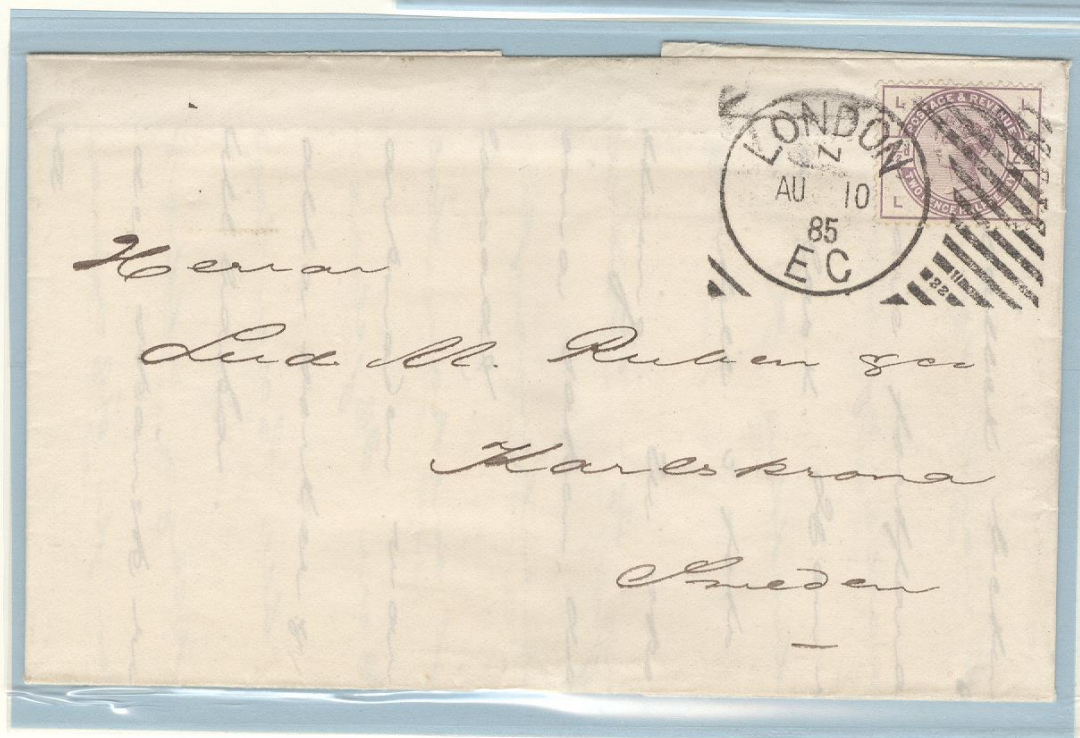 LONDON
N
AU 10
85
E C
POSTAGE & REVENUE
L L
L
Herrar
Lud. M. Ruben & co
Karlskrona
Sweden